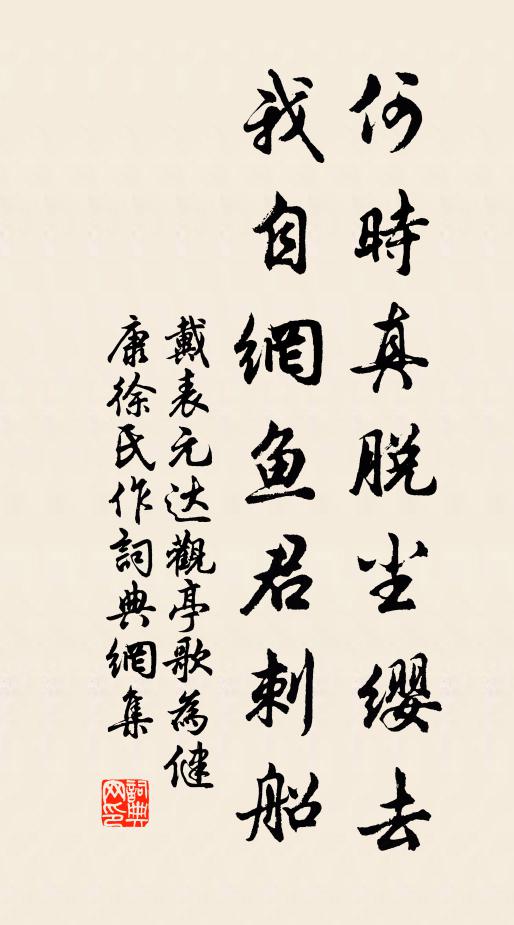 何時真脱尘缨去
我自網鱼君刺船
戴表元达觀亭歌為健
康徐氏作詞典網集
詞典网印